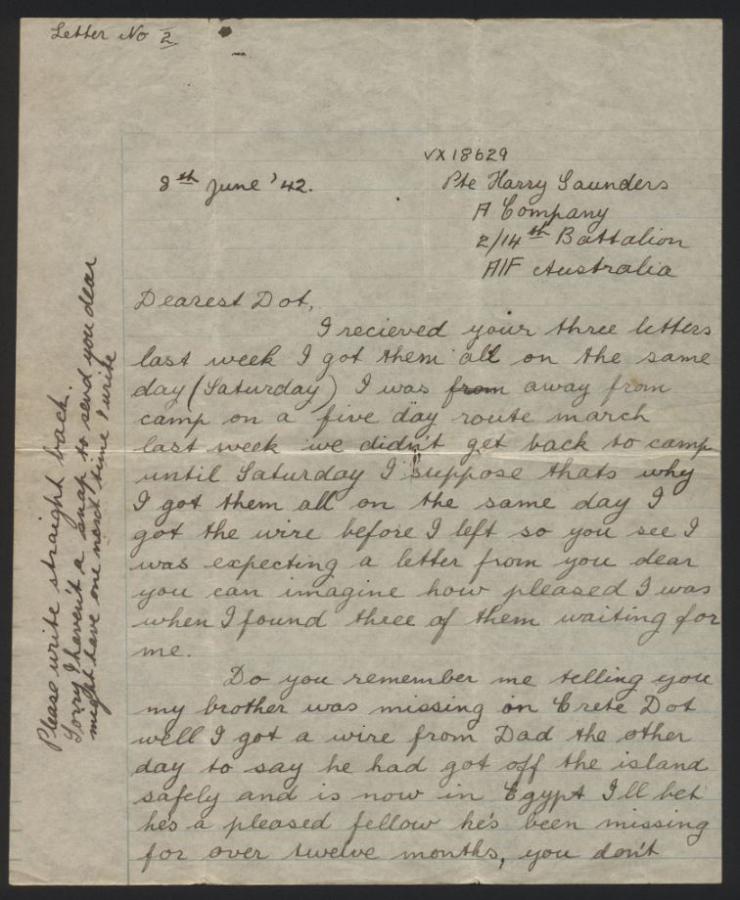 Letter No 2
VX18629
8th June '42.
Pte Harry Saunders
A Company
2/14th Battalion
AIF Australia
Dearest Dot,
I recieved your three letters
last week I got them all on the same
day (Saturday) I was from away from
camp on a five day route march
last week we didn't get back to camp
until Saturday I suppose thats why
I got them all on the same day I
got the wire before I left so you see I
was expecting a letter from you dear
you can imagine how pleased I was
when I found three of them waiting for
me.
Do you remember me telling you
my brother was missing on Crete Dot
well I got a wire from Dad the other
day to say he had got off the island
safely and is now in Egypt I'll bet
he's a pleased fellow he's been missing
for over twelve months, you don't
Please write straight back.
Sorry I haven't a snap to send you dear
might have one next time I write